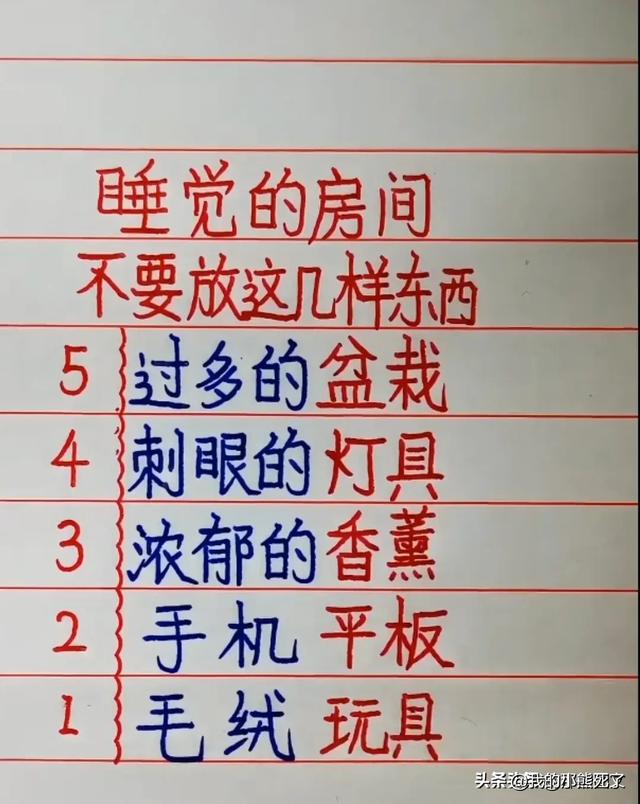 睡觉的房间
不要放这几样东西
5 过多的盆栽
4 刺眼的灯具
3 浓郁的香薰
2 手机 平板
1 毛绒 玩具